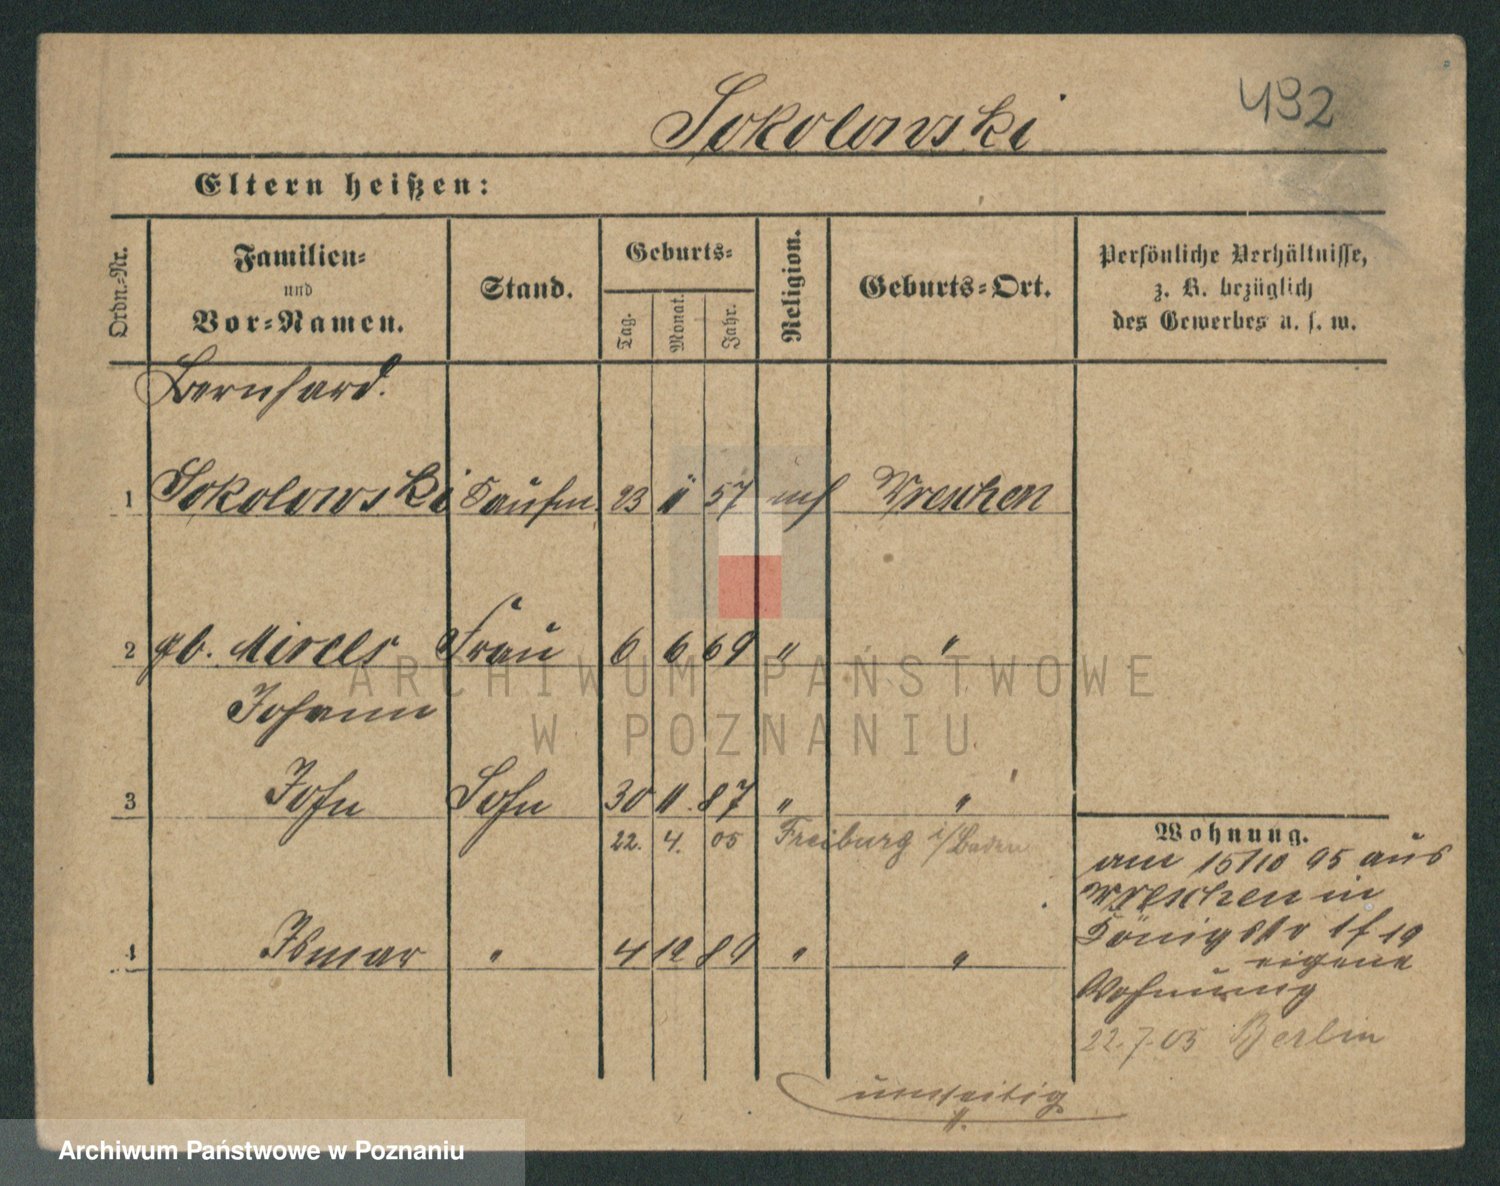 492
Sokolowski
Eltern heißen:
Ordn.-Nr.
Familien-
und
Vor-Namen.
Stand.
Geburts-
Tag.
Monat.
Jahr.
Religion.
Geburts-Ort.
Persönliche Verhältnisse,
z. B. bezüglich
des Gewerbes u. s. w.
Bernhard.
1 Sokolowski Kaufm. 23 11 57 Wreschen
2 gb. Mirels Frau 6 6 69 " "
Johann
3 John Sohn 30 11. 87 " "
22. 4. 05 Freiburg i/Baden
4 Ismar " 4 12 89 " "
Wohnung.
am 15/10 95 aus
Wreschen in
Königstr 19
eigene
Wohnung
22.7.05 Berlin
umseitig
ARCHIWUM PAŃSTWOWE
W POZNANIU
Archiwum Państwowe w Poznaniu